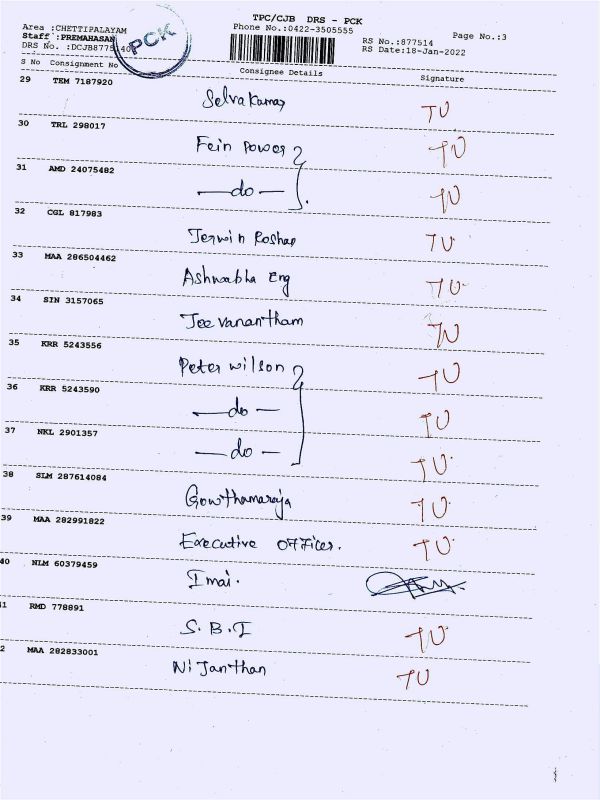 TPC/CJB DRS - PCK
Area :CHETTIPALAYAM Phone No.:0422-3505555 Page No.:3
Staff :PREMAHASAN RS No.:877514
DRS No. :DCJB8775 40 RS Date:18-Jan-2022
PCK
S No Consignment No Consignee Details Signature
29 TEM 7187920
Selvakumar TU
30 TRL 298017
Fein power TU
31 AMD 24075482
— do — TU
32 CGL 817983
Jerwin Roshan TU
33 MAA 286504462
Ashwabha Eng TU
34 SIN 3157065
Jeevanantham TU
35 KRR 5243556
Peter wilson TU
36 KRR 5243590
— do — TU
37 NKL 2901357
— do — TU
38 SLM 287614084
Gowthamaraja TU
39 MAA 282991822
Executive Officer. TU
40 NLM 60379459
Imai.
1 RMD 778891
S.B.I TU
2 MAA 282833001
Nijanthan TU